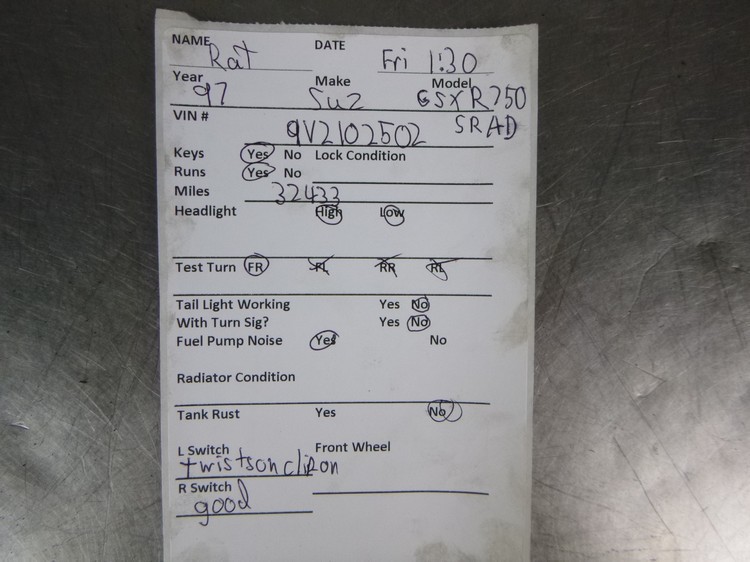 NAME Rat DATE Fri 1:30
Year 97 Make Suz Model GSXR750
SRAD
VIN # 9V2102502
Keys Yes No Lock Condition
Runs Yes No
Miles 32433
Headlight High Low
Test Turn FR FL RR RL
Tail Light Working Yes No
With Turn Sig? Yes No
Fuel Pump Noise Yes No
Radiator Condition
Tank Rust Yes No
L Switch Front Wheel
twists on clip on
R Switch
good